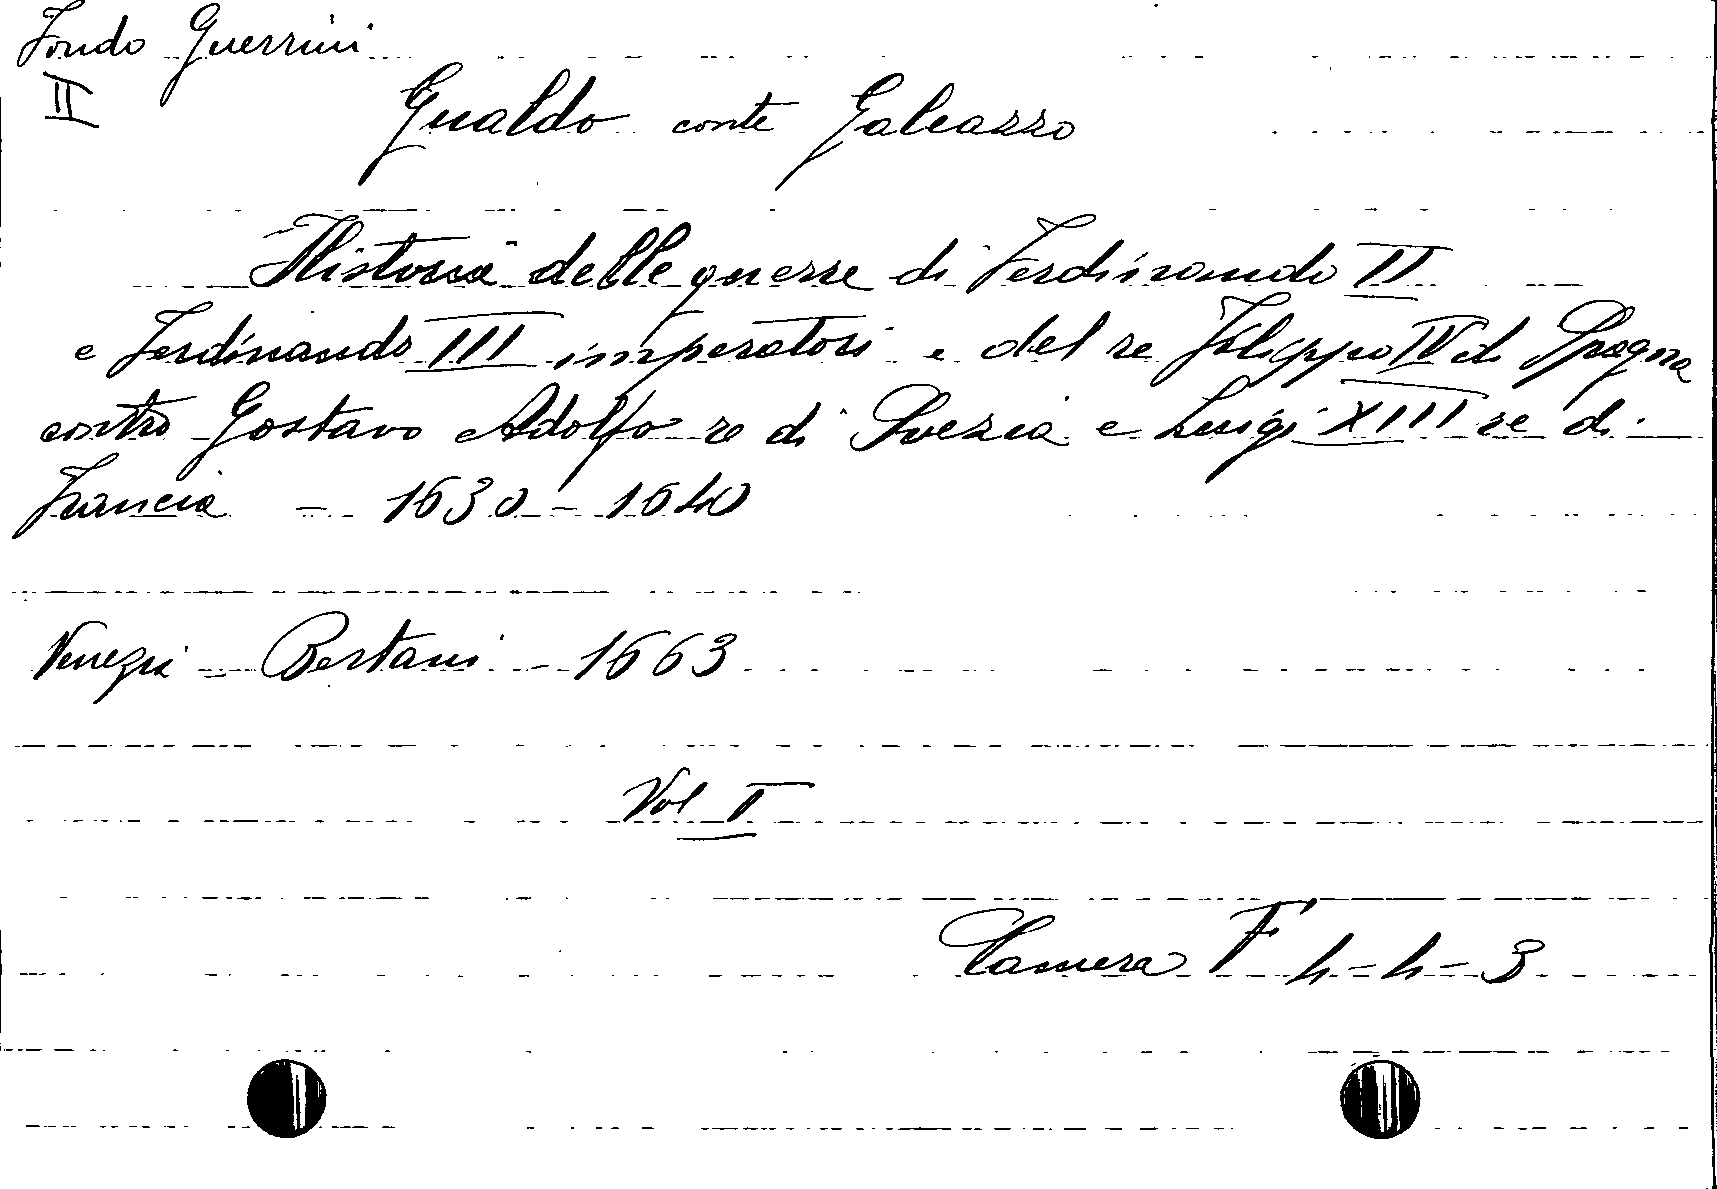 Fondo Guerrini
II
Gualdo conte Galeazzo
Historia delle guerre di Ferdinando II
e Ferdinando III imperatori e del re Filippo IV di Spagna
contro Gostavo Adolfo re di Svezia e Luigi XIII re di
Francia - 1630 - 1640
Venezia - Bertani - 1663
Vol I
Camera F 4-4-3